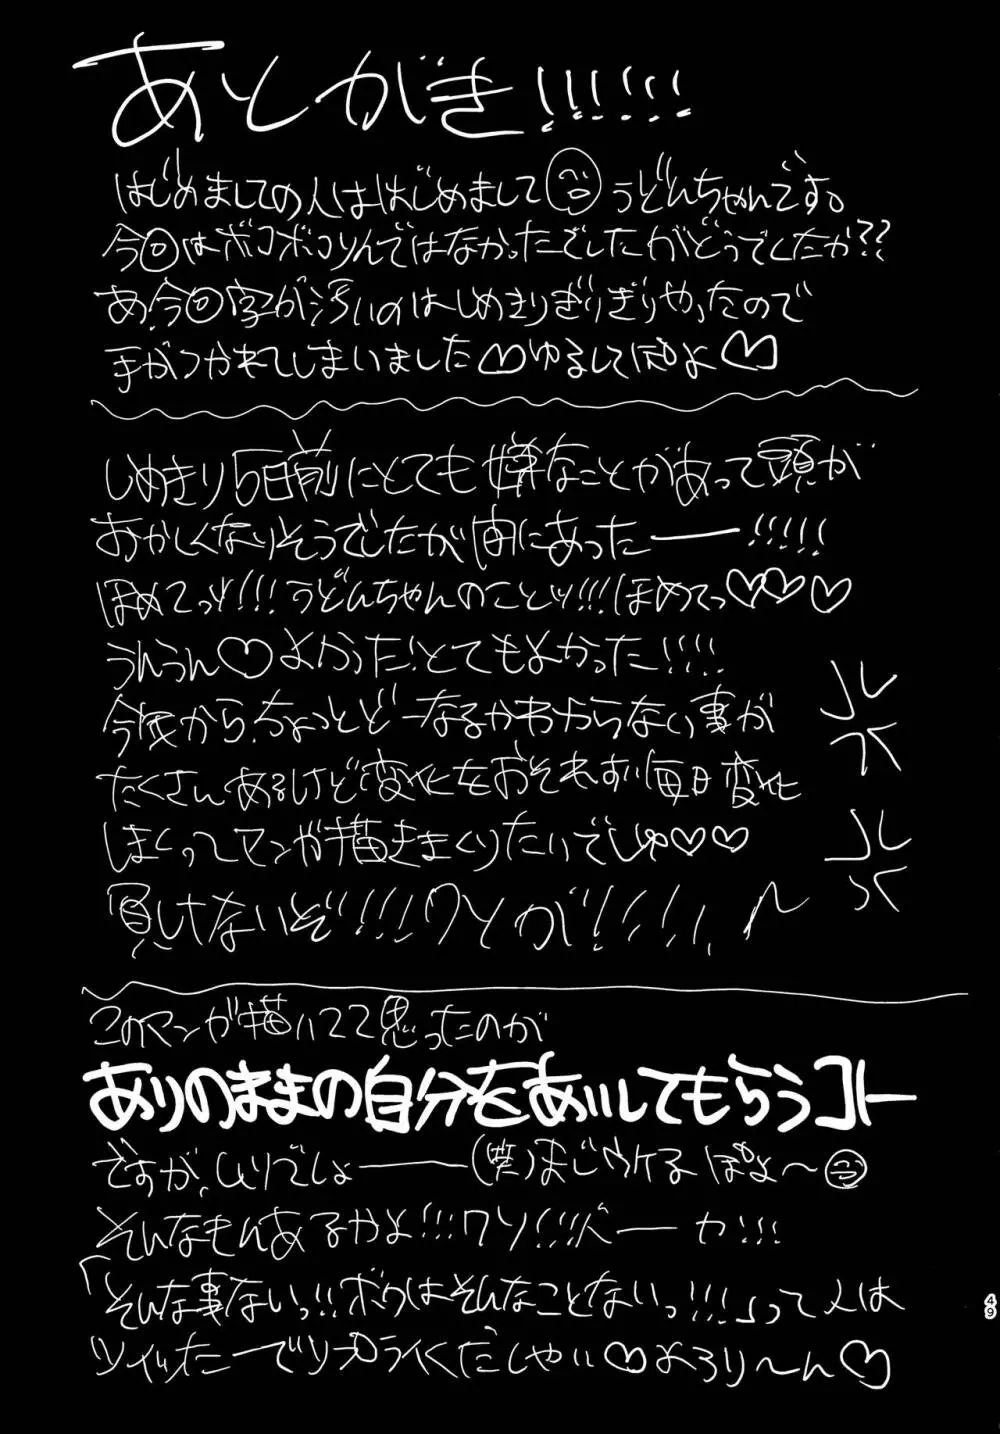 あとがき!!!!!!
はじめましての人ははじめまして うどんちゃんです。
今回はボコボコりんではなかったでしたがどうでしたか??
あ、今回字が汚いのはしめきりぎりぎりやったので
手がつかれてしまいました♡ゆるしてぽよ♡
しめきり5日前にとても嫌なことがあって頭が
おかしくなりそうでしたが間にあったー!!!!!
ほめてッ!!!うどんちゃんのことッ!!!ほめてっ♡♡♡
うんうん♡よかった!とてもよかった!!!!
今後から、ちょっとどーなるかわからない事が
たくさんあるけど変化をおそれずい毎日変化
しまくってマンガ描きまくりたいでしゅ♡♡
負けないぞ!!!!クソが!!!!!
このマンガ描いてて思ったのが
ありのままの自分をあいしてもらうコト
ですが、ムリでしょー(笑)まじウケるぽよ〜
そんなもんあるかよ!!!クソ!!!バーカ!!!
「そんな事ないっ!!ボクはそんなことないっ!!!!」って人は
ツイッターでリプライくだしゃい♡よろり〜ん♡
49